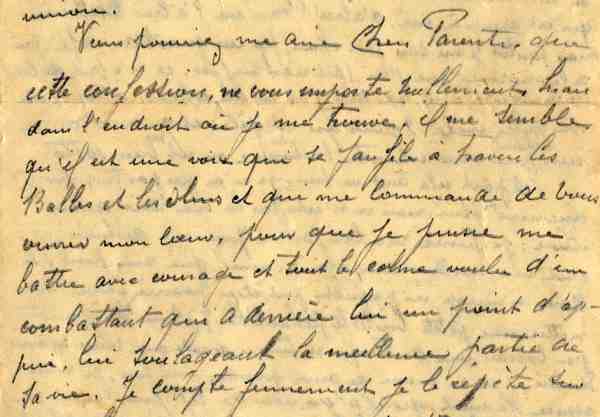 union.
Vous pourriez me dire Chers Parents, que
cette confession, ne vous importe nullement, mais
dans l'endroit où je me trouve, il me semble
qu'il est une voix qui se faufile à travers les
Balles et les obus et qui me commande de vous
ouvrir mon cœur, pour que je puisse me
battre avec courage et tout le calme voulu d'un
combattant qui a derrière lui un point d'ap-
pui, lui soulageant la meilleure partie de
sa vie. Je compte fermement je le répète sur